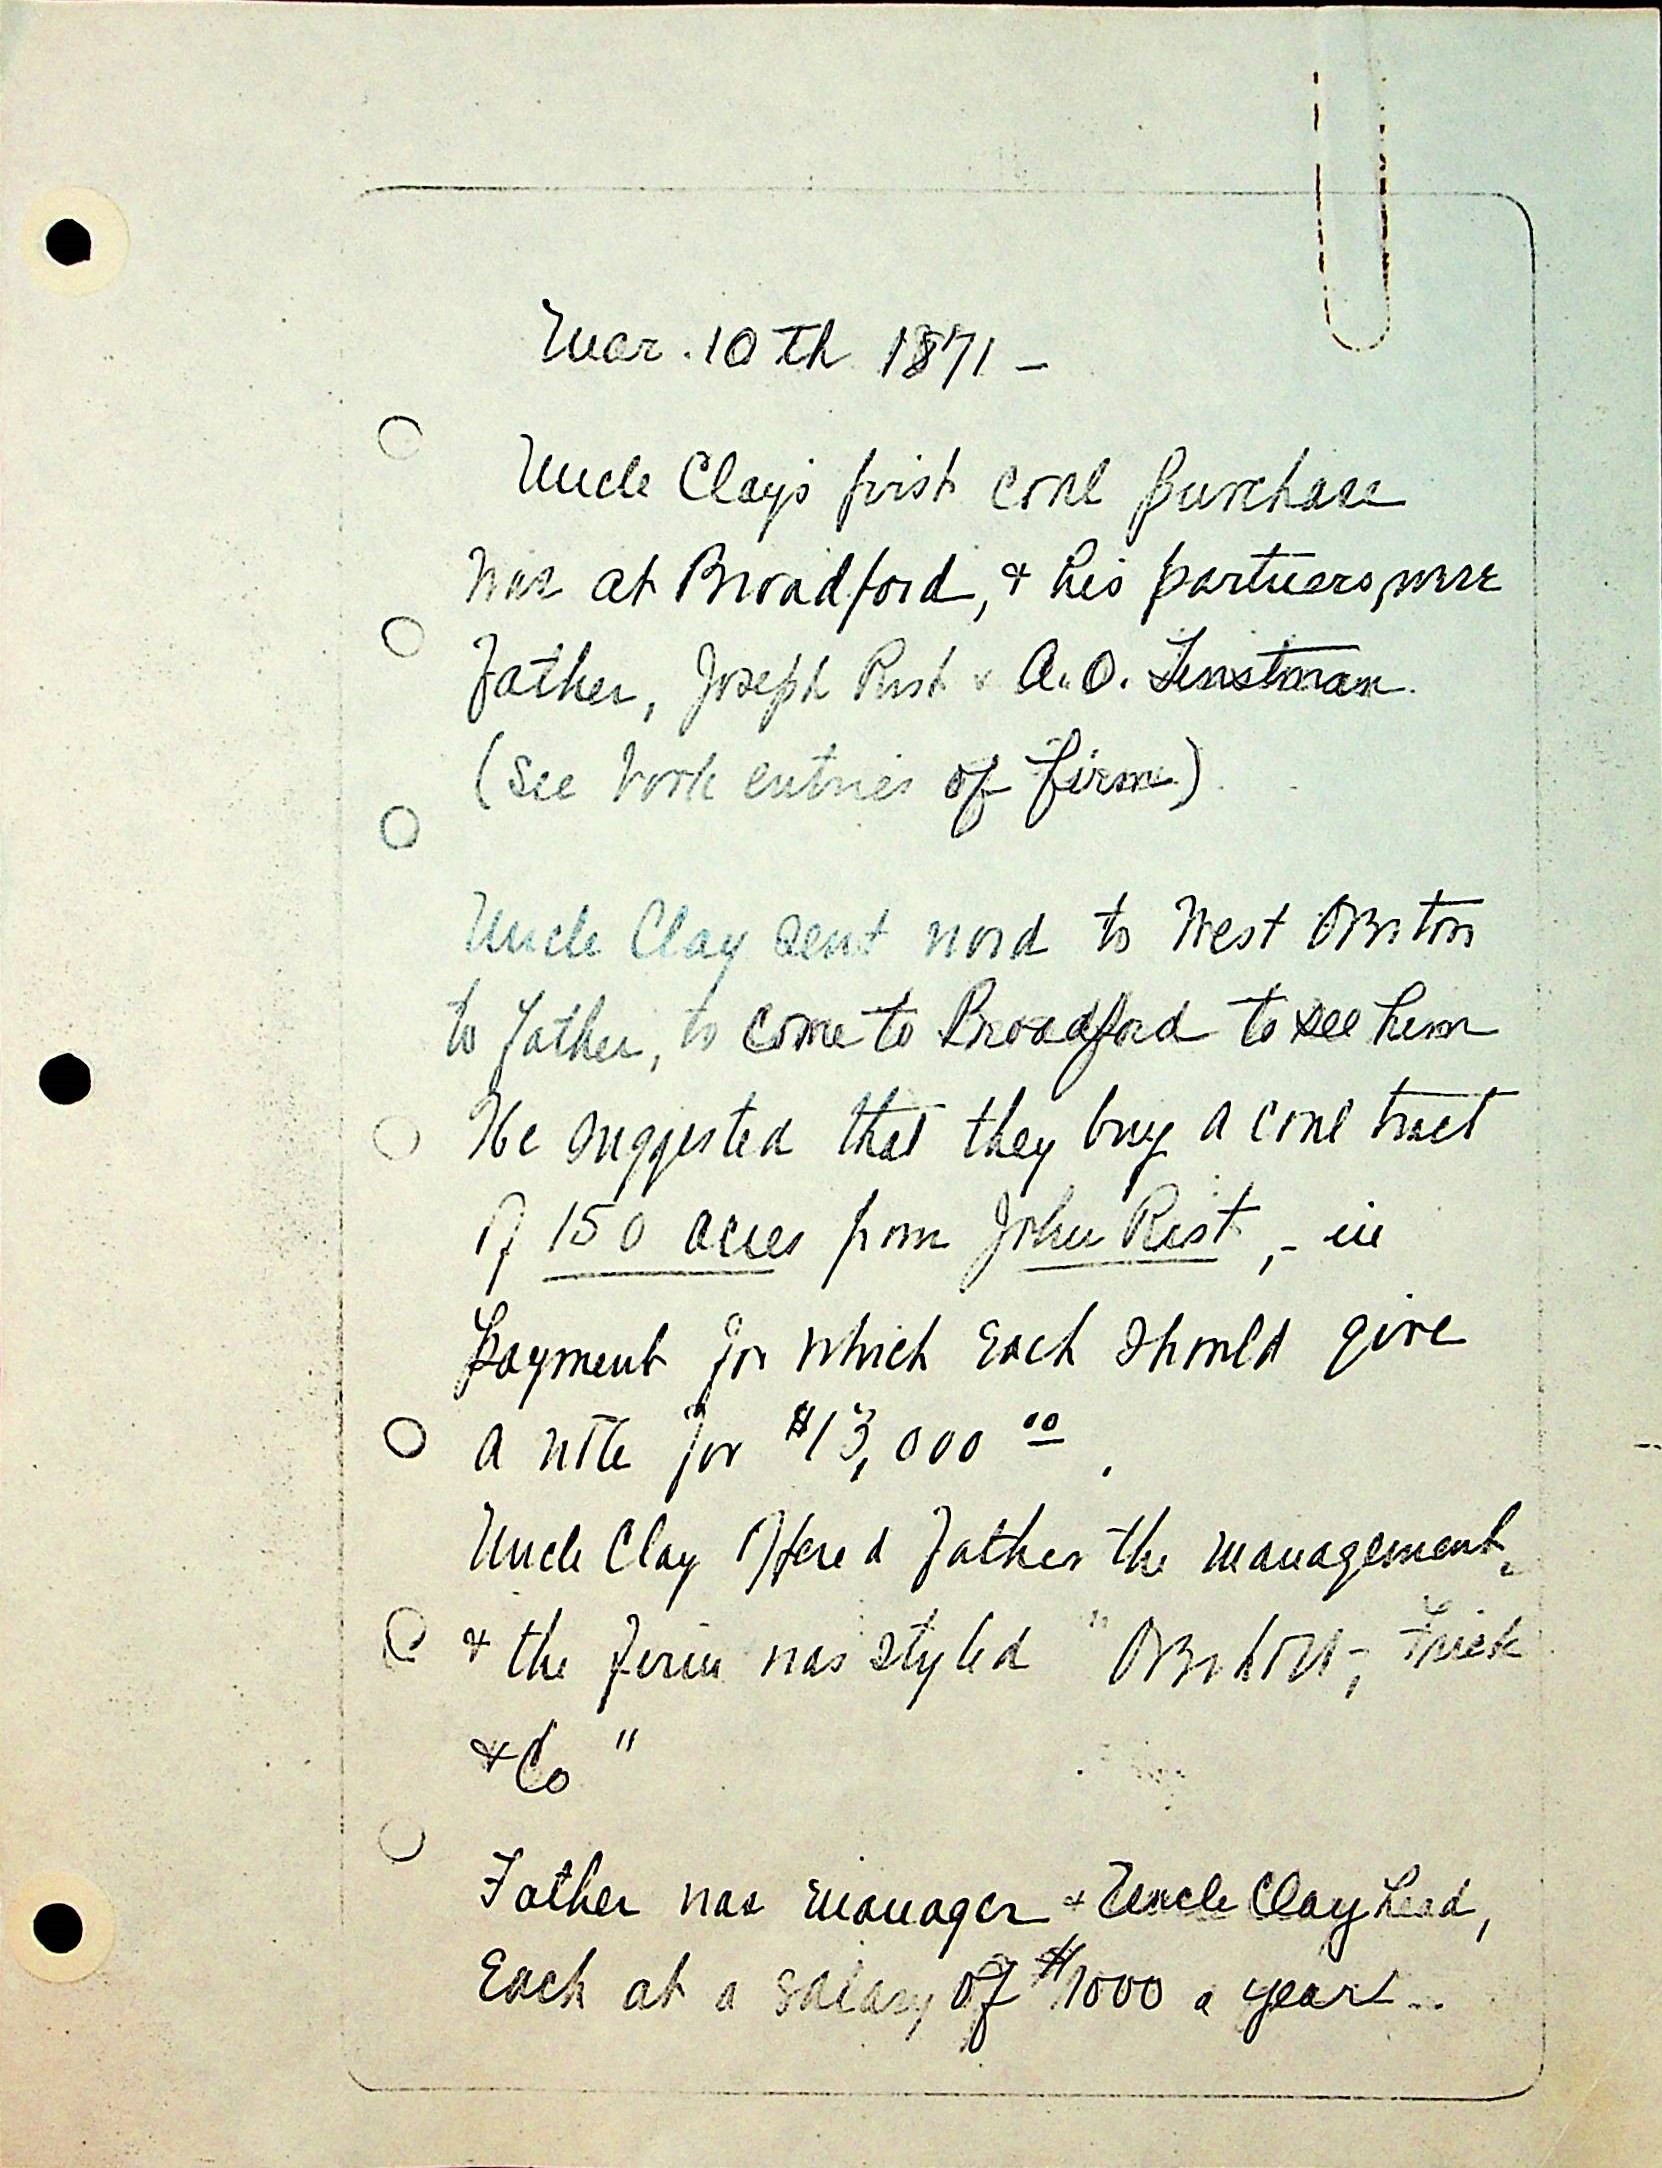 Mar. 10th 1871 –
Uncle Clay's first coal purchase
was at Broadford, & his partners, were
Father, Joseph Rist & A.O. Tinstman.
(see work entries of firm.)
Uncle Clay sent word to West Overton
to Father, to come to Broadford to see him
He suggested that they buy a coal tract
of 150 acres from John Rist, – in
payment for which each should give
a note for $13,000 00.
Uncle Clay offered Father the management,
& the firm was styled "Overholt, Frick
& Co"
Father was manager & Uncle Clay head,
Each at a salary of $1000 a year –